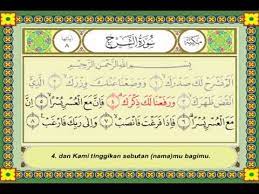 مكية سورة الشرح آياتها ٨
بسم الله الرحمن الرحيم
أَلَمْ نَشْرَحْ لَكَ صَدْرَكَ ١ وَوَضَعْنَا عَنكَ وِزْرَكَ ٢ الَّذِي
أَنقَضَ ظَهْرَكَ ٣ وَرَفَعْنَا لَكَ ذِكْرَكَ ٤ فَإِنَّ مَعَ الْعُسْرِ يُسْرًا ٥
إِنَّ مَعَ الْعُسْرِ يُسْرًا ٦ فَإِذَا فَرَغْتَ فَانصَبْ ٧ وَإِلَىٰ رَبِّكَ فَارْغَب ٨
4. dan Kami tinggikan sebutan (nama)mu bagimu.